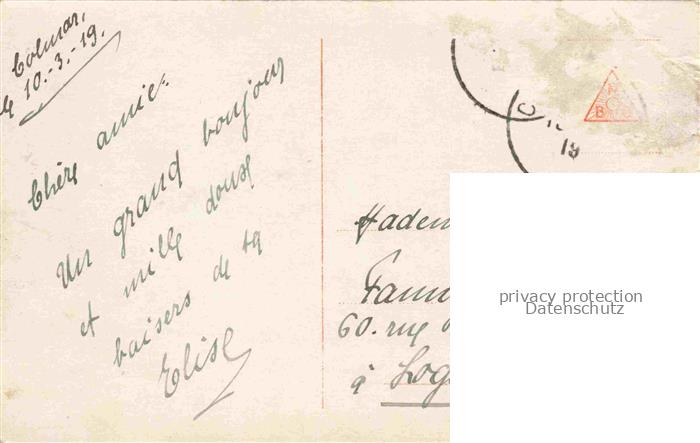 Colmar,
le 10.-3.-19.
Chère amie.
Un grand bonjour
et mille doux
baisers de ta
Elise
19
N
B
Fann
60. rue
à
privacy protection
Datenschutz